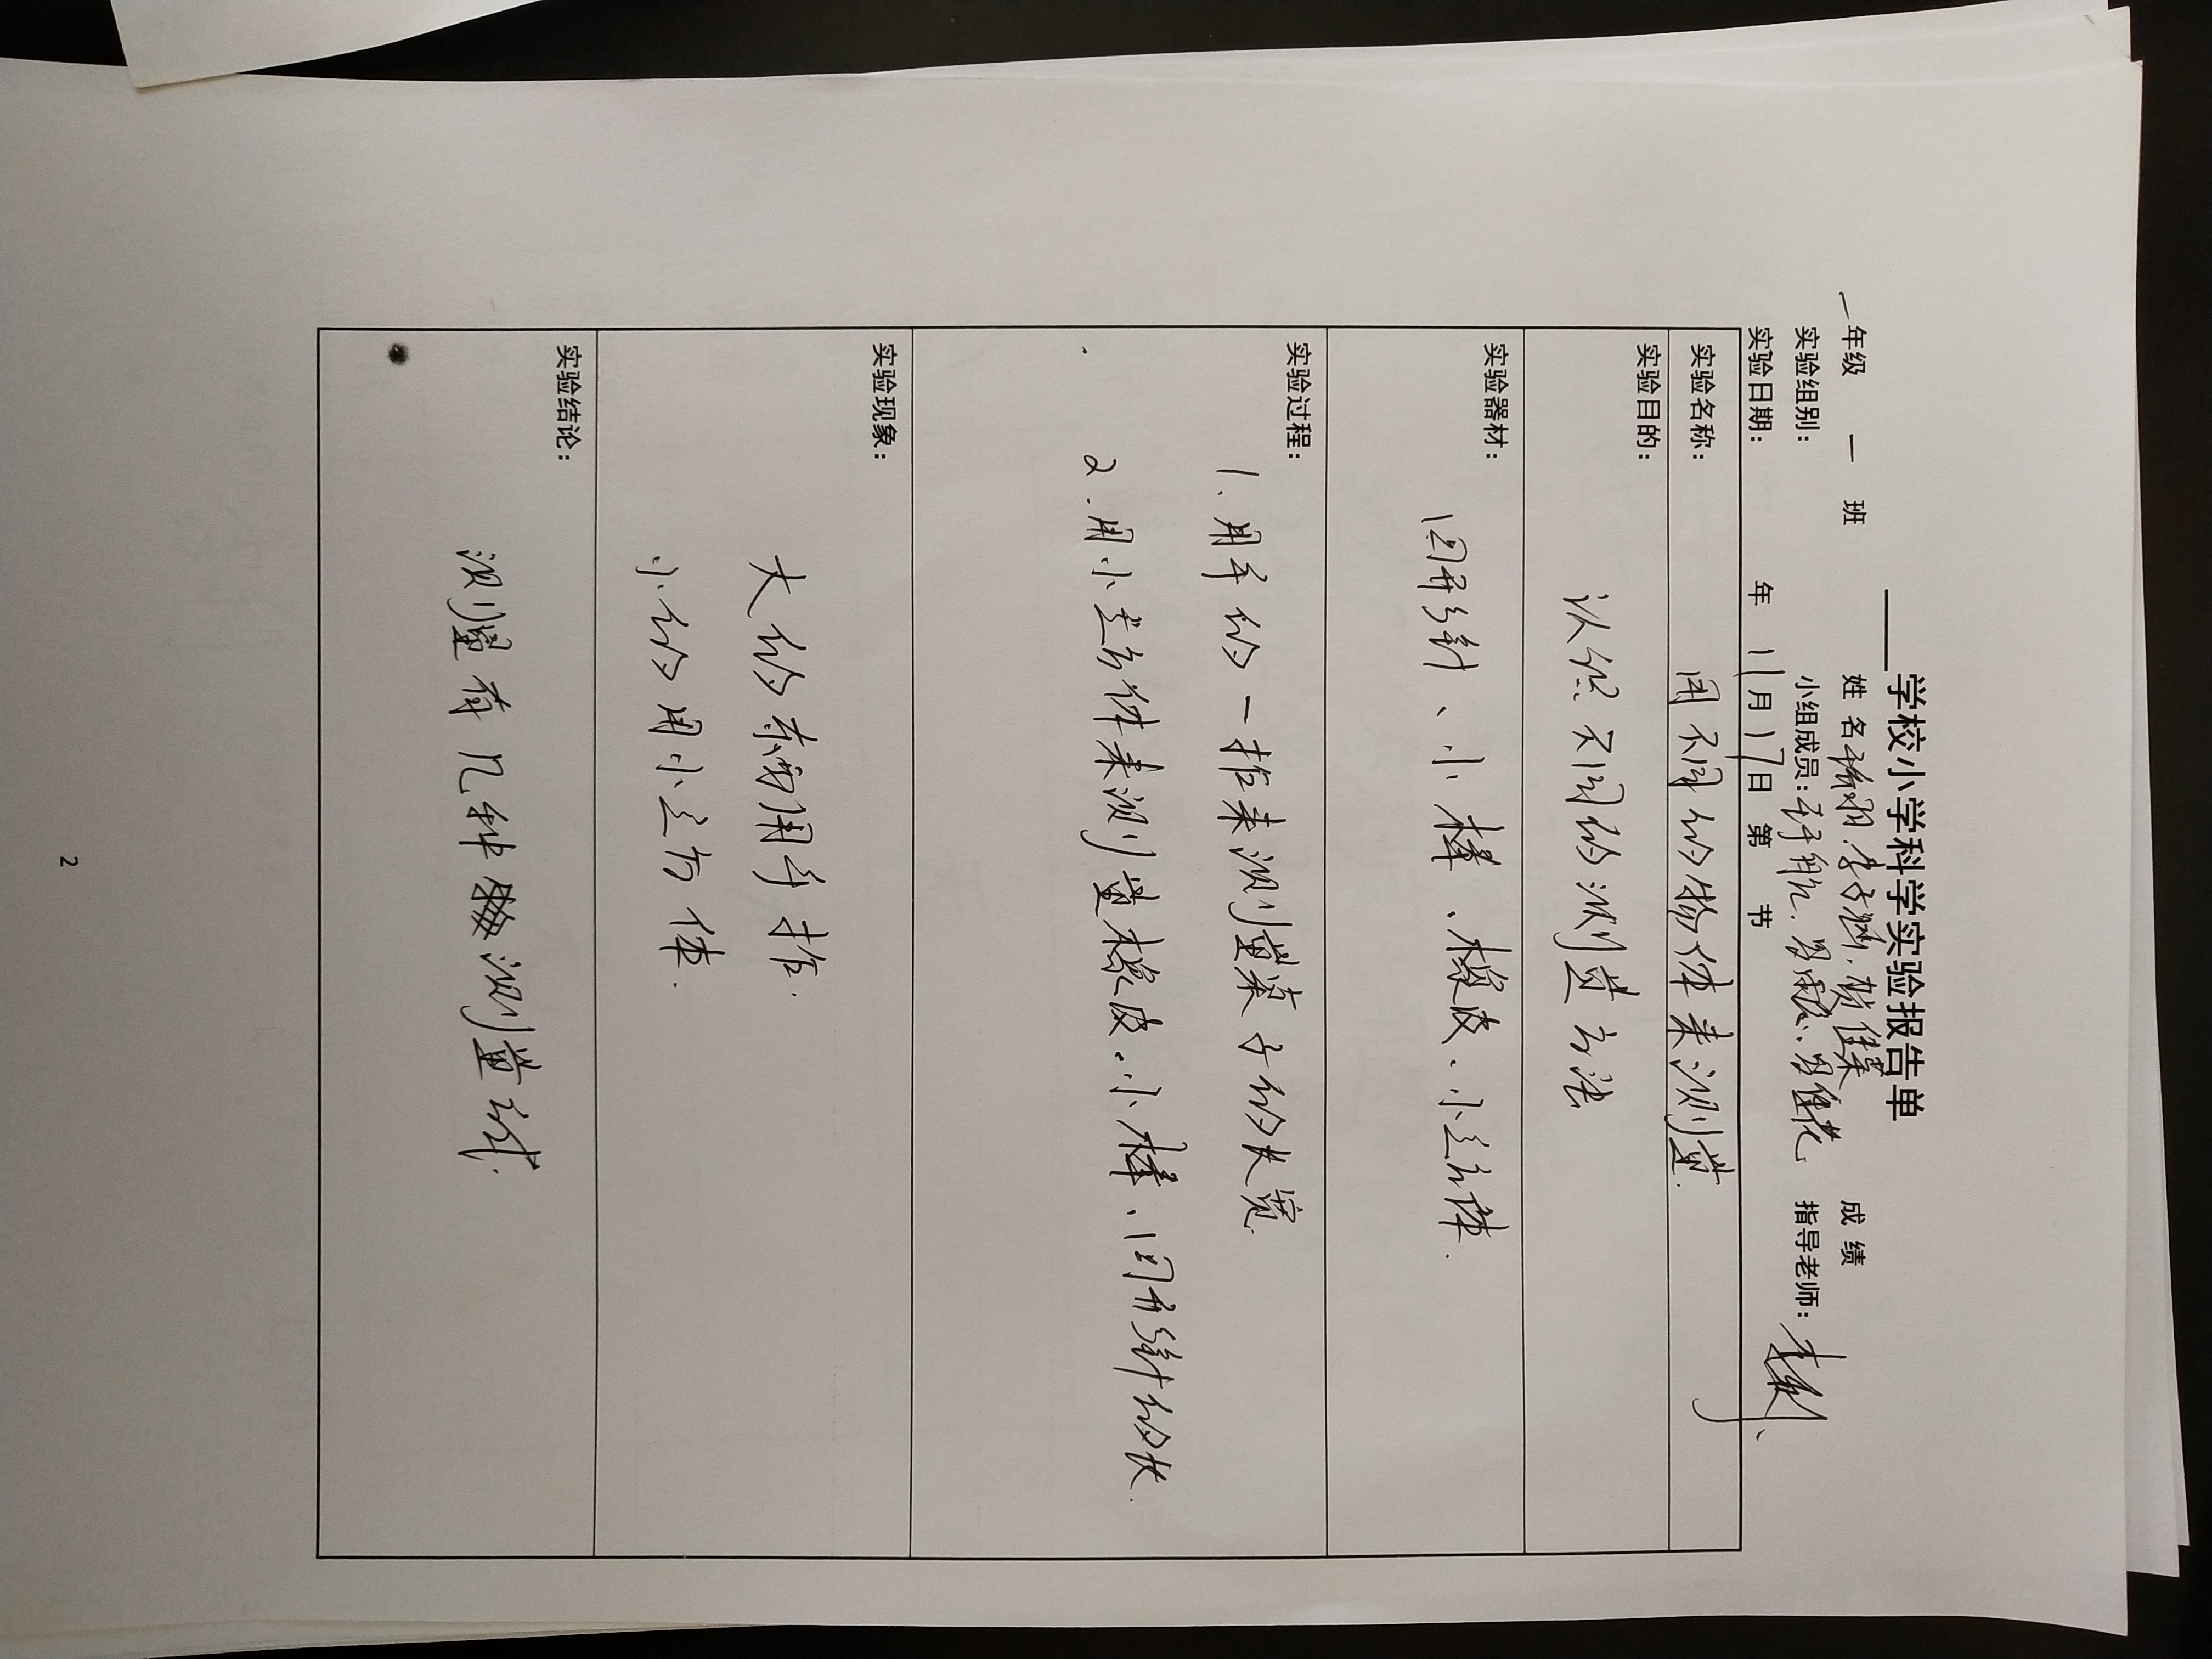 学校小学科学实验报告单
一年级 一 班 姓 名 成 绩
实验组别： 小组成员： 指导老师：
实验日期： 年 11月 17日 第 节
实验名称： 用不同的物体来测量.
实验目的：
认识不同的测量方法
实验器材：
回形针、小棒、橡皮、小立方体.
实验过程：
1、用手的一指来测量桌子的长宽.
2.用小立方体来测量橡皮.小棒、回形针的长.
实验现象：
大的东西用手指.
小的用小立方体.
实验结论：
测量有几种测量方式.
2